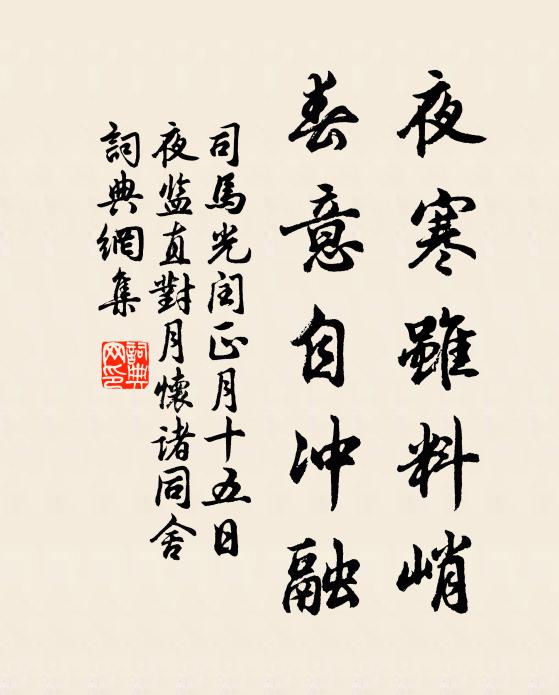 夜寒雖料峭
春意自冲融
司馬光閏正月十五日
夜监直對月懷诸同舍
詞典網集
詞典
网印